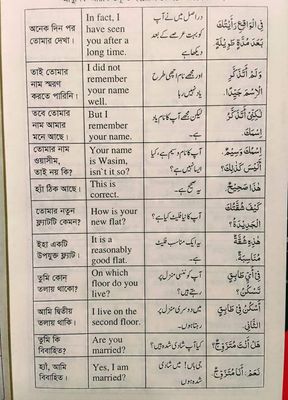 অনেক দিন পর
তোমার দেখা।
In fact, I
have seen
you after a
long time.
دراصل میں نے آپ
کو بہت عرصے کے بعد
دیکھا ہے
فِي الْوَاقِعِ رَأَيْتُكَ
بَعْدَ مُدَّةٍ طَوِيلَةٍ.
তাই তোমার
নাম স্মরণ
করতে পারিনি।
I did not
remember
your name
well.
اور مجھے نام اچھی طرح
یاد نہیں رہا
وَلَمْ أَتَذَكَّرِ
الْاِسْمَ جَيِّدًا.
তবে তোমার
নাম আমার
মনে আছে।
But I
remember
your name.
لیکن مجھے آپ کا نام یاد
ہے۔
لَكِنِّي أَتَذَكَّرُ
اِسْمَكَ.
তোমার নাম
ওয়াসীম,
তাই নয় কি?
Your name
is Wasim,
isn't it so?
آپ کا نام وسیم ہے، کیا
ایسا نہیں ہے؟
اِسْمُكَ وَسِيمٌ،
أَلَيْسَ كَذَلِكَ؟
হ্যাঁ ঠিক আছে।
This is
correct.
یہ صحیح ہے۔
هَذَا صَحِيحٌ.
তোমার নতুন
ফ্ল্যাটটি কেমন?
How is your
new flat?
آپ کا نیا فلیٹ کیسا ہے؟
كَيْفَ شُقَّتُكَ
الْجَدِيدَةُ؟
ইহা একটি
উপযুক্ত ফ্ল্যাট।
It is a
reasonably
good flat.
یہ ایک مناسب فلیٹ
ہے۔
هَذِهِ شُقَّةٌ
مُنَاسِبَةٌ.
তুমি কোন্
তলায় থাকো?
On which
floor do you
live?
آپ کونسی منزل پر
رہتے ہیں؟
فِي أَيِّ طَابِقٍ
تَسْكُنُ؟
আমি দ্বিতীয়
তলায় থাকি।
I live on the
second floor.
میں دوسری منزل پر
رہتا ہوں۔
أَسْكُنُ فِي طَابِقِ
الثَّانِي.
তুমি কি
বিবাহিত?
Are you
married?
کیا آپ شادی شدہ ہیں؟
هَلْ أَنْتَ مُتَزَوِّجٌ؟
হ্যাঁ, আমি
বিবাহিত।
Yes, I am
married.
جی ہاں! میں شادی
شدہ ہوں
نَعَمْ، أَنَا مُتَزَوِّجٌ